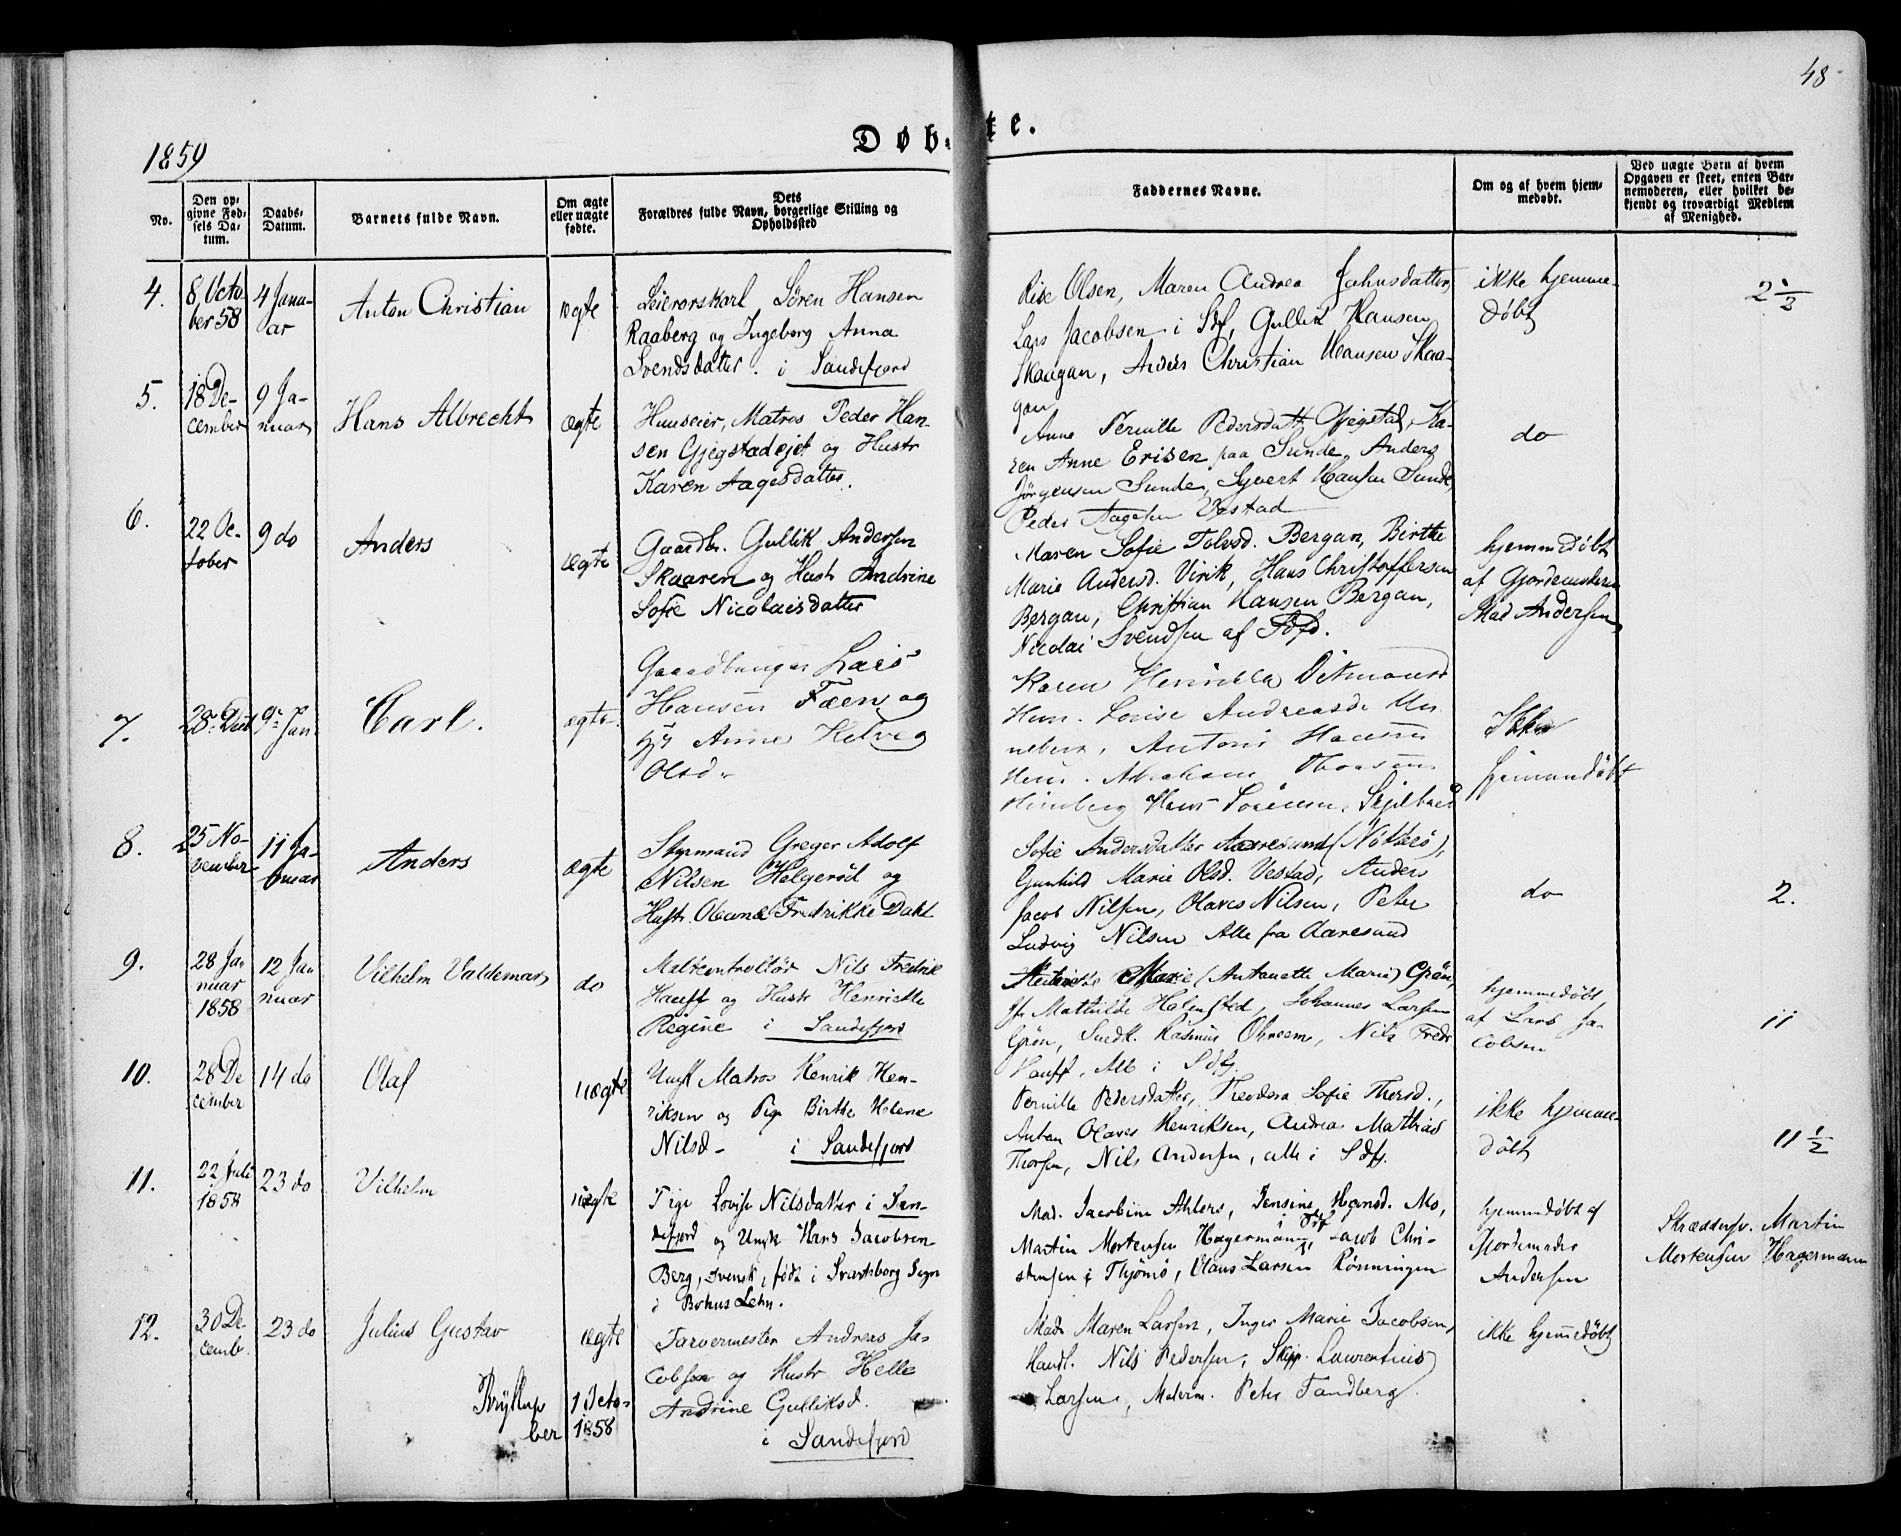 48
1859
Døbte.
No.
Den op-
givne Fød-
sels Da-
tum.
Daabs-
Datum.
Barnets fulde Navn.
Om ægte
eller uægte
fødte.
Dets
Forældres fulde Navn, borgerlige Stilling og
Opholdssted
Faddernes Navne.
Om og af hvem hjem-
medøbt.
Ved uægte Børn af hvem
Opgaven er skeet, enten Bar-
nemoderen, eller hvilket be-
kjendt og troværdigt Medlem
af Menighed.
4.
8 Octo
ber 58
4 Janu-
ar
Anton Christian
ægte
Søren Hansen
Raaberg og Ingeborg Anna
Svendsdatter. i Sandefjord
Olsen, Maren Andrea Jahnsdatter,
Lars Jacobsen i Sdf, Gullik Hansen
Skaagan, Anders Christian Hansen Skaa-
gan
ikke hjemme-
døbt
2 1/2
5.
18 De-
cember
9 Ja-
nuar
Hans Albrecht
ægte
Huuseier, Matros Peder Han-
sen Gjegstadejet og Hustr
Karen Aagesdatter.
Anne Pernille Pedersdatt Gjegstad, Ka-
ren Anne Ericsen paa Sunde, Anders
Jørgensen Sunde, Syvert Hansen Sunde,
Peder Aagesen Vestad
do
6.
22 Oc-
tober
9 do
Anders
ægte
Gaardbr. Gullik Andersen
Skaaren og Hustr Andrine
Sofie Nicolaisdatter
Maren Sofie Tolvsd. Bergan, Birthe
Marie Andersd. Virik, Hans Christoffersen
Bergan, Christian Hansen Bergan,
Nicolai Svendsen af Sdfd.
hjemmedøbt
af Gjordemoderen
Mad Andersen
7.
28 Decb
9 Jan
Carl.
ægte
Gaardbruger Lars
Hansen Fæen og
Anne Helvig
Olsd.
Karen Henrikka Ditmansd
Hem. Lovise Andreasd. Un
neberg, Anton Hansen
Hem. Abraham Thoresen
Himberg Hans Sørensen, Skjelbred
Ikke
hjemmedøbt
8.
25 No-
vember
11 Ja-
nuar
Anders
ægte
Styrmand Greger Adolf
Nilsen Helgerød og
Hustr. Oleane Fredrikke Dahl
Sofie Andersdatter Aaresund (Nötterö),
Gunhild Marie Olsd. Vestad, Anders
Jacob Nilsen, Olaves Nilsen, Peter
Ludvig Nilsen Alle fra Aaresund
do
2.
9.
28 Ja
nuar
1858
12 Jan
nuar
Vilhelm Valdemar
do
Maltcontrollør Nils Fredrik
Hauff og Hustr Henriette
Regine i Sandefjord
Marie (Antonette Marie) Grøn,
Jfr Mathilde Helmsted, Johannes Larsen
Grøn, Snedk. Rasmus Ohnsem, Nils Fredr
Hauff, Alle i Sdfj.
hjemmedøbt
af Lars Ja-
cobsen
11
10.
28 De
cember
14 do
Olaf
uægte
Ungk Matros Henrik Hen-
riksen og Pige Birthe Helene
Nilsd- i Sandefjord
Pernille Pedersdatter, Theodora Sofie Thorsd.,
Anton Olaves Henriksen, Andreas Mathias
Thorsen, Nils Andersen, alle i Sdfj.
ikke hjemme-
døbt
11 1/2
11.
22 Juli
1858
23 do
Vilhelm
uægte
Pige Lovise Nilsdatter i San-
defjord og Ungk Hans Jacobsen
Berg, svensk, født i Svartsborg Sogn
i Bohus Lehn.
Mad. Jacobine Ahlers, Jensine Hansd. Mo,
Martin Mortensen Hagermann i Sdf, Jacob Chri-
stensen i Thjömö, Olaus Larsen Rönningen
hjemmedøbt af
Jordemoder
Andersen
Skræddersv. Martin
Mortensen Hagermann
12.
30 De
cemb.
23 do
Julius Gustav
ægte
Farvermester Andreas Ja-
cobsen og Hustr Helle
Andrine Gulliksd.
i Sandefjord
Bryllup 1 Octo-
ber 1858
Mad. Maren Larsen, Inger Marie Jacobsen,
Handl. Nils Pedersen, Skipp. Laurentius
Larsen, Malerm. Peter Tandberg.
ikke hjemmedøbt